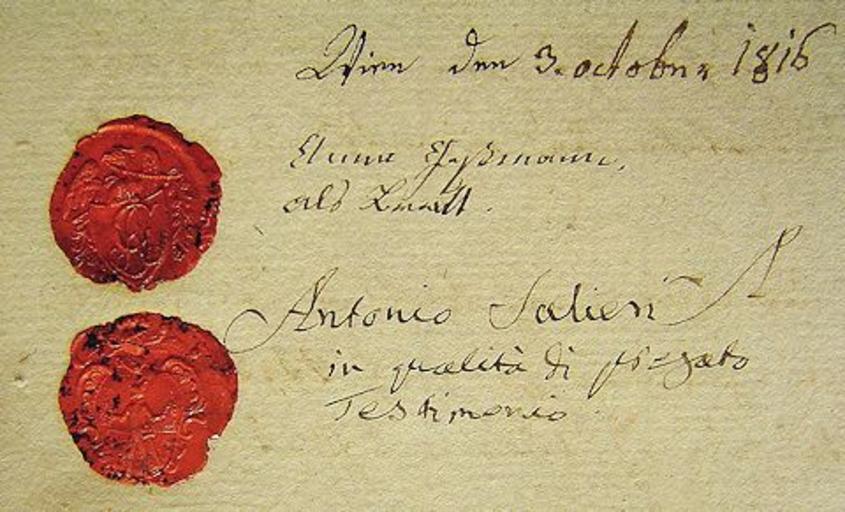 Wien den 3. october 1816
als Braut.
Antonio Salieri
in qualità di pregato
Testimonio